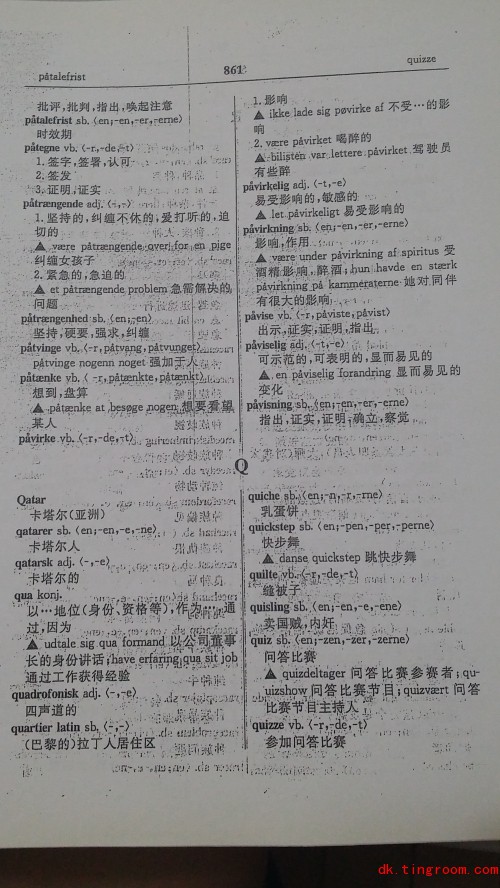 påtalefrist
861
quizze
批评,批判,指出,唤起注意
påtalefrist sb. (en;-en,-er,-erne)
时效期
påtegne vb. (-r,-de,-t)
1. 签字,签署,认可
2. 签发
3. 证明,证实
påtrængende adj. (-,-)
1. 坚持的,纠缠不休的,爱打听的,迫
切的
▲ være påtrængende over for en pige
纠缠女孩子
2. 紧急的,急迫的
▲ et påtrængende problem 急需解决的
问题
påtrængenhed sb. (en;-en)
坚持,硬要,强求,纠缠
påtvinge vb. (-r,påtvang,påtvunget)
påtvinge nogen noget 强加于人
påtænke vb. (-r,påtænkte,påtænkt)
想到,盘算
▲ påtænke at besøge nogen 想要看望
某人
påvirke vb. (-r,-de,-t)
1. 影响
▲ ikke lade sig påvirke af 不受…的影
响
2. være påvirket 喝醉的
▲ bilisten var lettere påvirket 驾驶员
有些醉
påvirkelig adj. (-t,-e)
易受影响的,敏感的
▲ let påvirkeligt 易受影响的
påvirkning sb. (en;-en,-er,-erne)
影响,作用
▲ være under påvirkning af spiritus 受
酒精影响,醉酒;hun havde en stærk
påvirkning på kammeraterne 她对同伴
有很大的影响
påvise vb. (-r,påviste,påvist)
出示,证实,证明,指出
påviselig adj. (-t,-e)
可示范的,可表明的,显而易见的
▲ en påviselig forandring 显而易见的
变化
påvisning sb. (en;-en,-er,-erne)
指出,证实,证明,确立,察觉
Q
Qatar
卡塔尔(亚洲)
qatarer sb. (en;-en,-e,-ne)
卡塔尔人
qatarsk adj. (-,-e)
卡塔尔的
qua konj.
以…地位(身份、资格等),作为…,通
过,因为
▲ udtale sig qua formand 以公司董事
长的身份讲话;have erfaring qua sit job
通过工作获得经验
quadrofonisk adj. (-,-e)
四声道的
quartier latin sb. (-,-)
(巴黎的)拉丁人居住区
quiche sb. (en;-n,-r,-rne)
乳蛋饼
quickstep sb. (en;-pen,-per,-perne)
快步舞
▲ danse quickstep 跳快步舞
quilte vb. (-r,-de,-t)
缝被子
quisling sb. (en;-en,-e,-ene)
卖国贼,内奸
quiz sb. (en;-zen,-zer,-zerne)
问答比赛
▲ quizdeltager 问答比赛参赛者;qu-
uizshow 问答比赛节目;quizvært 问答
比赛节目主持人
quizze vb. (-r,-de,-t)
参加问答比赛
dk.tingroom.com